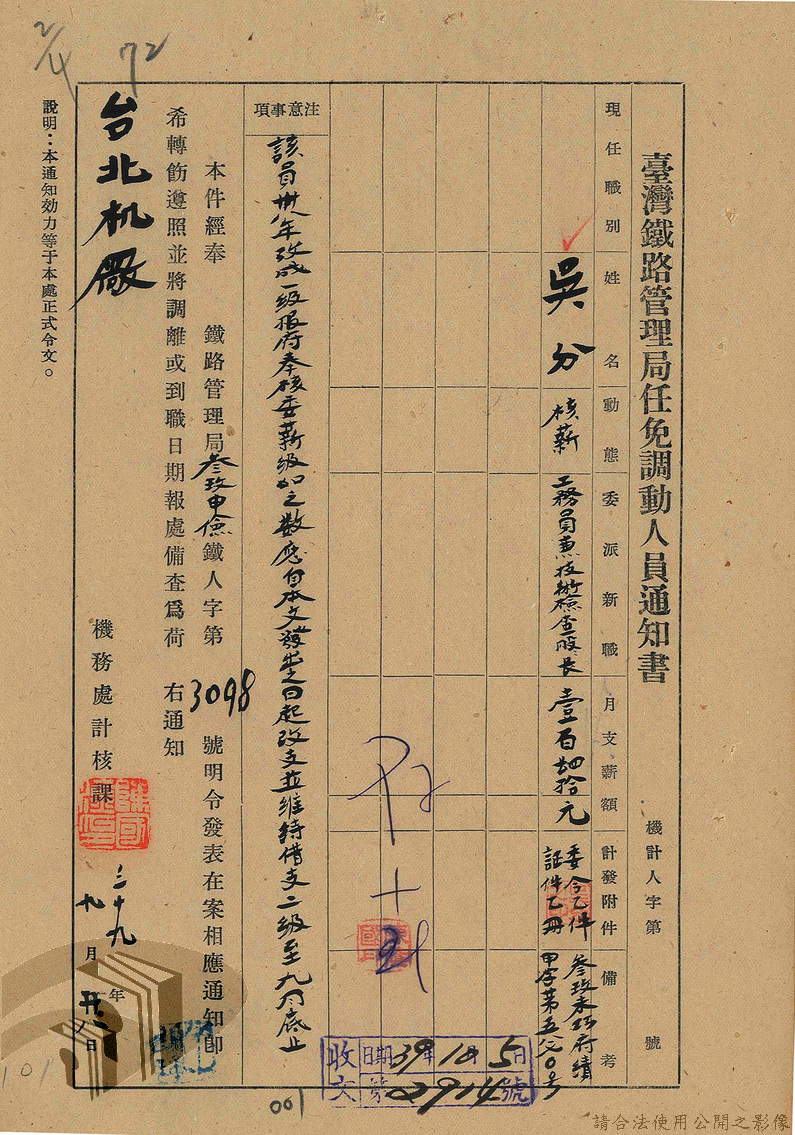 2/4
72
臺灣鐵路管理局任免調動人員通知書
機計人字第 號
現任職別
姓名
動態
委派新職
月支薪額
計發附件
備考
吳分
核薪
工務員兼技術檢查股長
壹百四拾元
委令乙件
証件乙冊
叁玖未巧府績
甲字第五八〇号
注意事項
該員卅八年攷成一級报府奉核委薪級如之數應自本文發出之日起改支並維持借支二級至九月底止
本件經奉 鐵路管理局叁玖申儉鐵人字第3098號明令發表在案相應通知卽
希轉飭遵照並將調離或到職日期報處備查爲荷 右通知
台北机廠
機務處計核課
三十九年九月廿八日
說明：本通知効力等于本處正式令文。
收文
日期39年10月5日
第2914號
001
101
請合法使用公開之影像